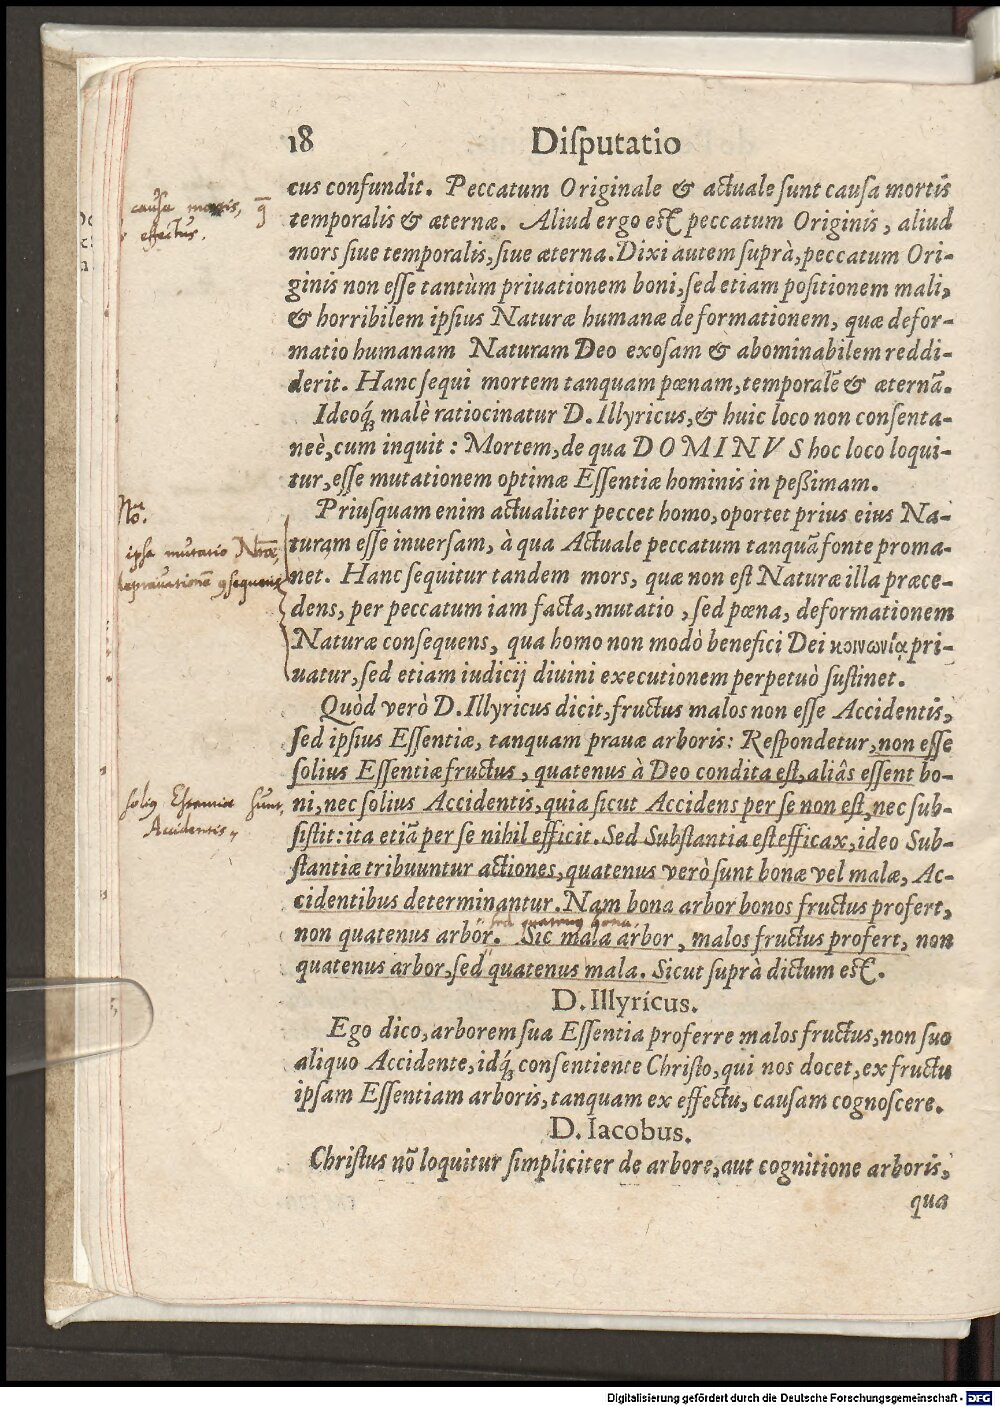 18 Diſputatio
cus confundit. Peccatum Originale & actuale ſunt cauſa mortis
temporalis & æternæ. Aliud ergo est peccatum Originis, aliud
mors ſiue temporalis, ſiue æterna. Dixi autem ſuprà, peccatum Ori-
ginis non eſſe tantùm priuationem boni, ſed etiam poſitionem mali,
& horribilem ipſius Naturæ humanæ deformationem, quæ defor-
matio humanam Naturam Deo exoſam & abominabilem reddi-
derit. Hanc ſequi mortem tanquam pœnam, temporalē & æternā.
Ideoq́₃ malè ratiocinatur D. Illyricus, & huic loco non conſenta-
neè, cum inquit: Mortem, de qua DOMINVS hoc loco loqui-
tur, eſſe mutationem optimæ Eſſentiæ hominis in peßimam.
Priuſquam enim actualiter peccet homo, oportet prius eius Na-
turam eſſe inuerſam, à qua Actuale peccatum tanquā fonte proma-
net. Hanc ſequitur tandem mors, quæ non eſt Naturæ illa præce-
dens, per peccatum iam facta, mutatio, ſed pœna, deformationem
Naturæ conſequens, qua homo non modò benefici Dei κοινωνίᾳ pri-
uatur, ſed etiam iudicij diuini executionem perpetuò ſuſtinet.
Quòd verò D. Illyricus dicit, fructus malos non eſſe Accidentis,
ſed ipſius Eſſentiæ, tanquam prauæ arboris: Reſpondetur, non eſſe
ſolius Eſſentiæ fructus, quatenus à Deo condita eſt, aliâs eſſent bo-
ni, nec ſolius Accidentis, quia ſicut Accidens per ſe non eſt, nec ſub-
ſiſtit: ita etiā per ſe nihil efficit. Sed Subſtantia eſt efficax, ideo Sub-
ſtantiæ tribuuntur actiones, quatenus verò ſunt bonæ vel malæ, Ac-
cidentibus determinantur. Nam bona arbor bonos fructus profert,
sed quatenus bona.
non quatenus arbor. Sic mala arbor, malos fructus profert, non
quatenus arbor, ſed quatenus mala. Sicut ſuprà dictum est.
D. Illyricus.
Ego dico, arborem ſua Eſſentia proferre malos fructus, non ſuo
aliquo Accidente, idq́₃ conſentiente Chriſto, qui nos docet, ex fructu
ipſam Eſſentiam arboris, tanquam ex effectu, cauſam cognoſcere.
D. Iacobus.
Chriſtus nō loquitur ſimpliciter de arbore, aut cognitione arboris,
qua
causa mortis,
effectus.
ipsa mutatio
Accidentis
Digitalisierung gefördert durch die Deutsche Forschungsgemeinschaft - DFG